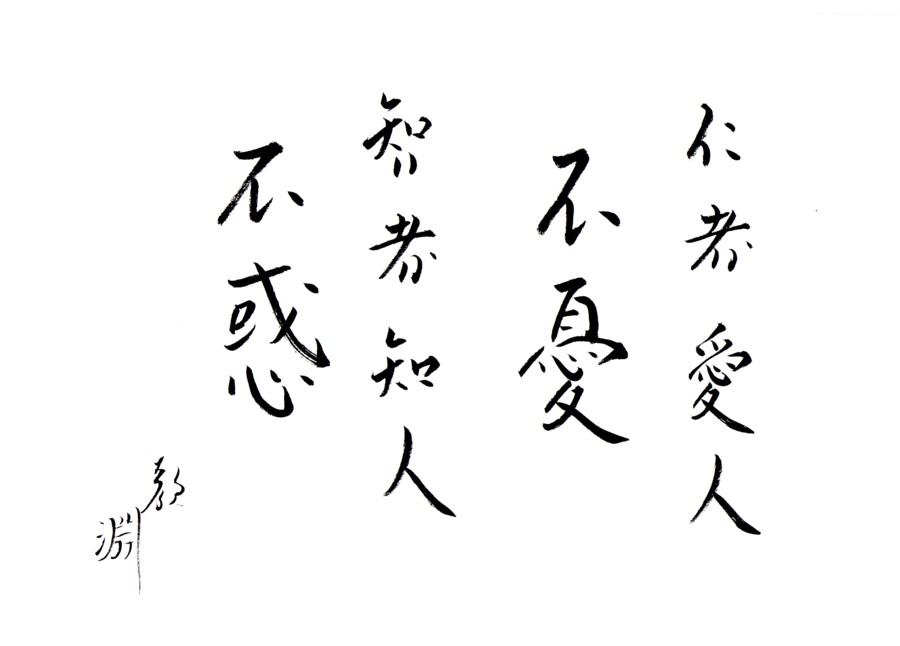 仁者愛人
不憂
智者知人
不惑
淵